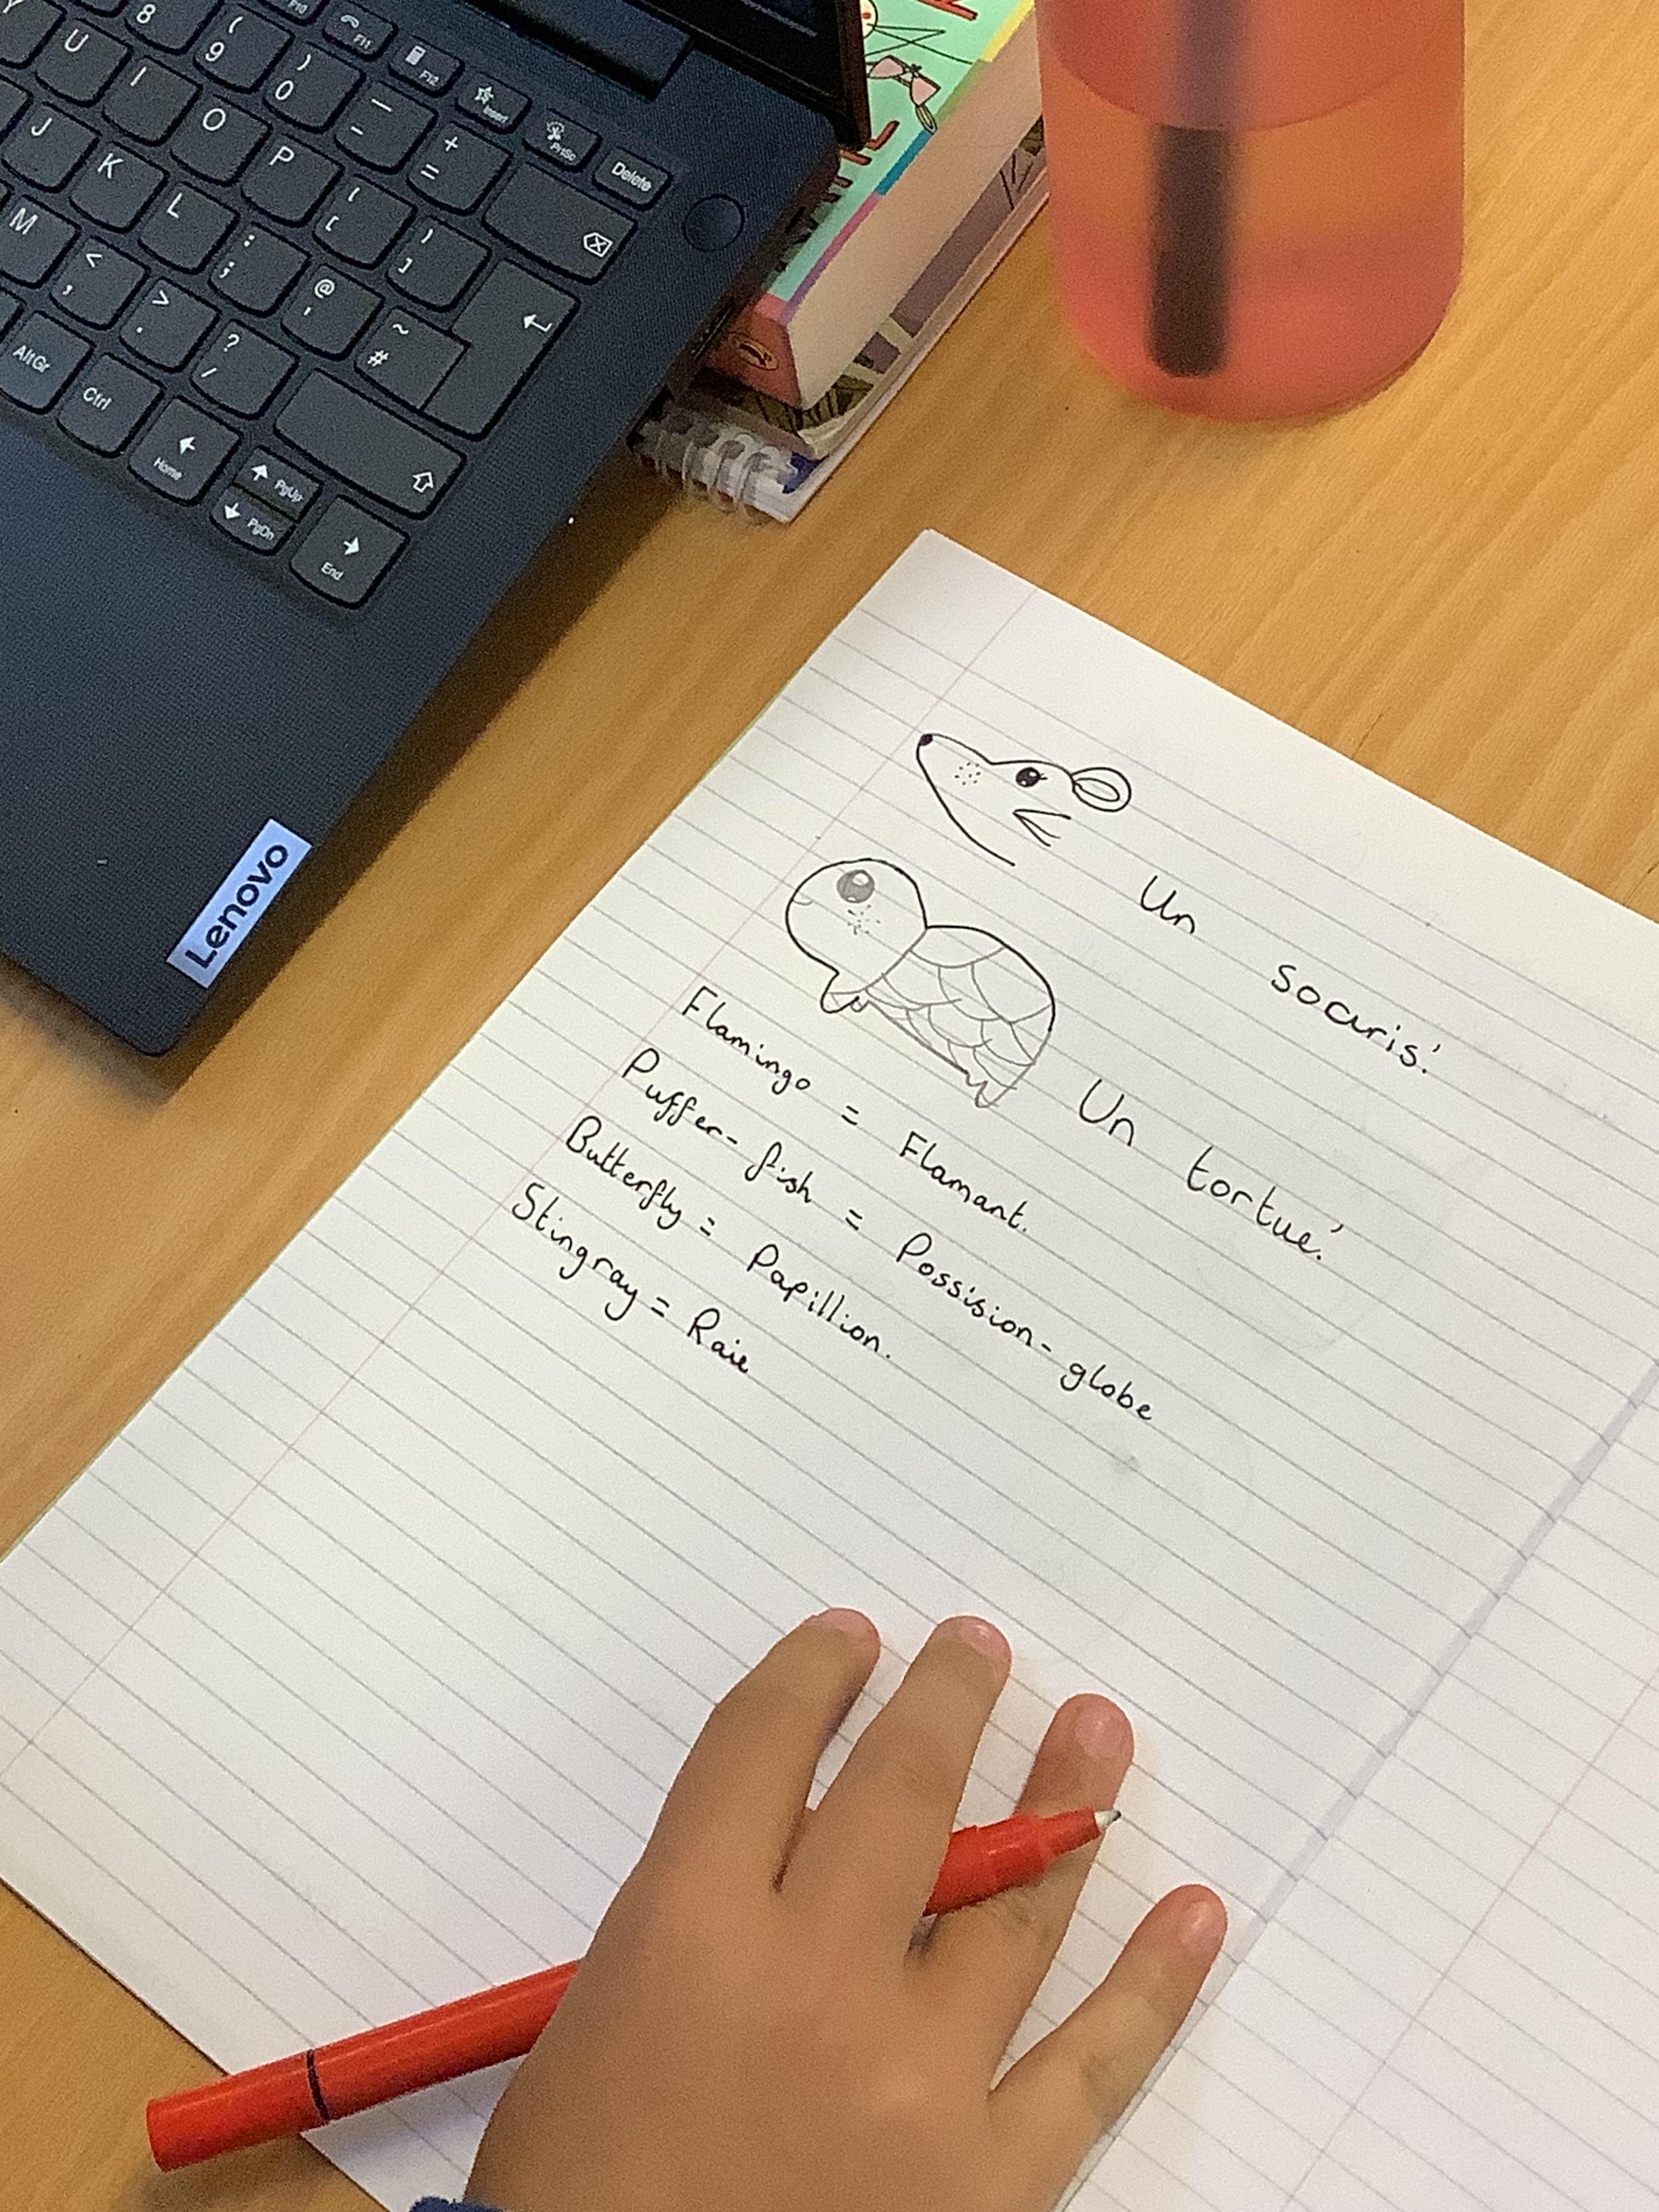 F10 F11 F12 Insert PrtSc Delete
8 ( 9 ) 0 _ - + =
Y U I O P { [ } ]
J K L : ; @ ' ~ #
M < , > . ? /
AltGr Ctrl Home PgUp PgDn End
Lenovo
Un socuris!
Un tortue!
Flamingo = Flamant.
Puffer-fish = Possision-globe
Butterfly = Papillion.
Stingray = Raie